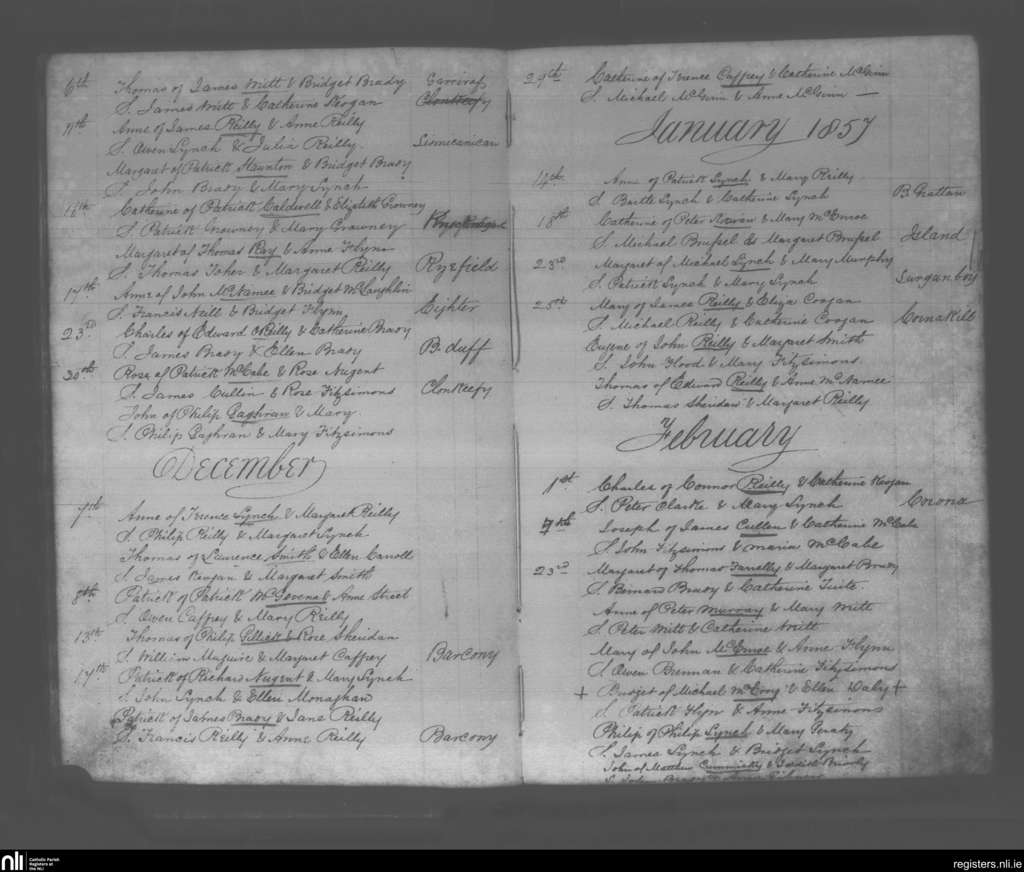 6th Thomas of James Mitt & Bridget Brady
S. James Mitt & Catherine Keogan Clonkeefy
11th Anne of James Reilly & Anne Reilly
S. Owen Lynch & Julia Reilly.
Margaret of Patrick Staunton & Bridget Brady
S. John Brady & Mary Lynch
16th Catherine of Patrick Caldwell & Elizabeth Growney
S. Patrick Growney & Mary Growney
Margaret of Thomas Ray & Anne Flynn
S. Thomas Toher & Margaret Reilly Ryefield
17th Anne of John McNamee & Bridget McLaughlin
S. Francis Neill & Bridget Flynn Eighter
23rd Charles of Edward OReilly & Catherine Brady
S. James Brady & Ellen Brady B. duff
30th Rose of Patrick McCabe & Rose Nugent
S. James Cullin & Rose Fitzsimons Clonkeefy
John of Philip Gaghran & Mary.
S. Philip Gaghran & Mary Fitzsimons
December
7th Anne of Terence Lynch & Margaret Reilly
S. Philip Reilly & Margaret Lynch
Thomas of Laurence Smith & Ellen Carroll
S. James Keogan & Margaret Smith
8th Patrick of Patrick McGovern & Anne Street
S. Owen Caffrey & Mary Reilly
13th Thomas of Philip Gillick & Rose Sheridan
S. William Maguire & Margaret Caffrey Barcony
17th Patrick of Richard Nugent & Mary Lynch
S. John Lynch & Ellen Monaghan
Patrick of James Brady & Jane Reilly
S. Francis Reilly & Anne Reilly Barcony
29th Catherine of Terence Caffrey & Catherine McGinn
S. Michael McGinn & Anne McGinn
January 1857
14th Anne of Patrick Lynch & Mary Reilly
S. Bartle Lynch & Catherine Lynch B. Grattan
18th Catherine of Peter & Mary McEnroe
S. Michael Brussel & Margaret Brussel Island
23rd Margaret of Michael Lynch & Mary Murphy
S. Patrick Lynch & Mary Lynch Lurganboy
25th Mary of James Reilly & Eliza Coogan
S. Michael Reilly & Catherine Coogan Cornakill
Eugene of John Reilly & Margaret Smith
S. John Flood & Mary Fitzsimons
Thomas of Edward Reilly & Anne McNamee
S. Thomas Sheridan & Margaret Reilly
February
1st Charles of Connor Reilly & Catherine Keogan
S. Peter Clarke & Mary Lynch Corona
7th Joseph of James Cullen & Catherine McCabe
S. John Fitzsimons & Maria McCabe
23rd Margaret of Thomas Farrelly & Margaret Brady
S. Bernard Brady & Catherine Tuite.
Anne of Peter Murray & Mary Mitt
S. Peter Mitt & Catherine Mitt
Mary of John McEnroe & Anne Flynn
S. Owen Brennan & Catherine Fitzsimons
+ Bridget of Michael McEvoy & Ellen Daly +
S. Patrick Flyn & Anne Fitzsimons
Philip of Philip Lynch & Mary Geraty
S. James Lynch & Bridget Lynch
John of Matthew
nli Catholic Parish Registers at the NLI
registers.nli.ie